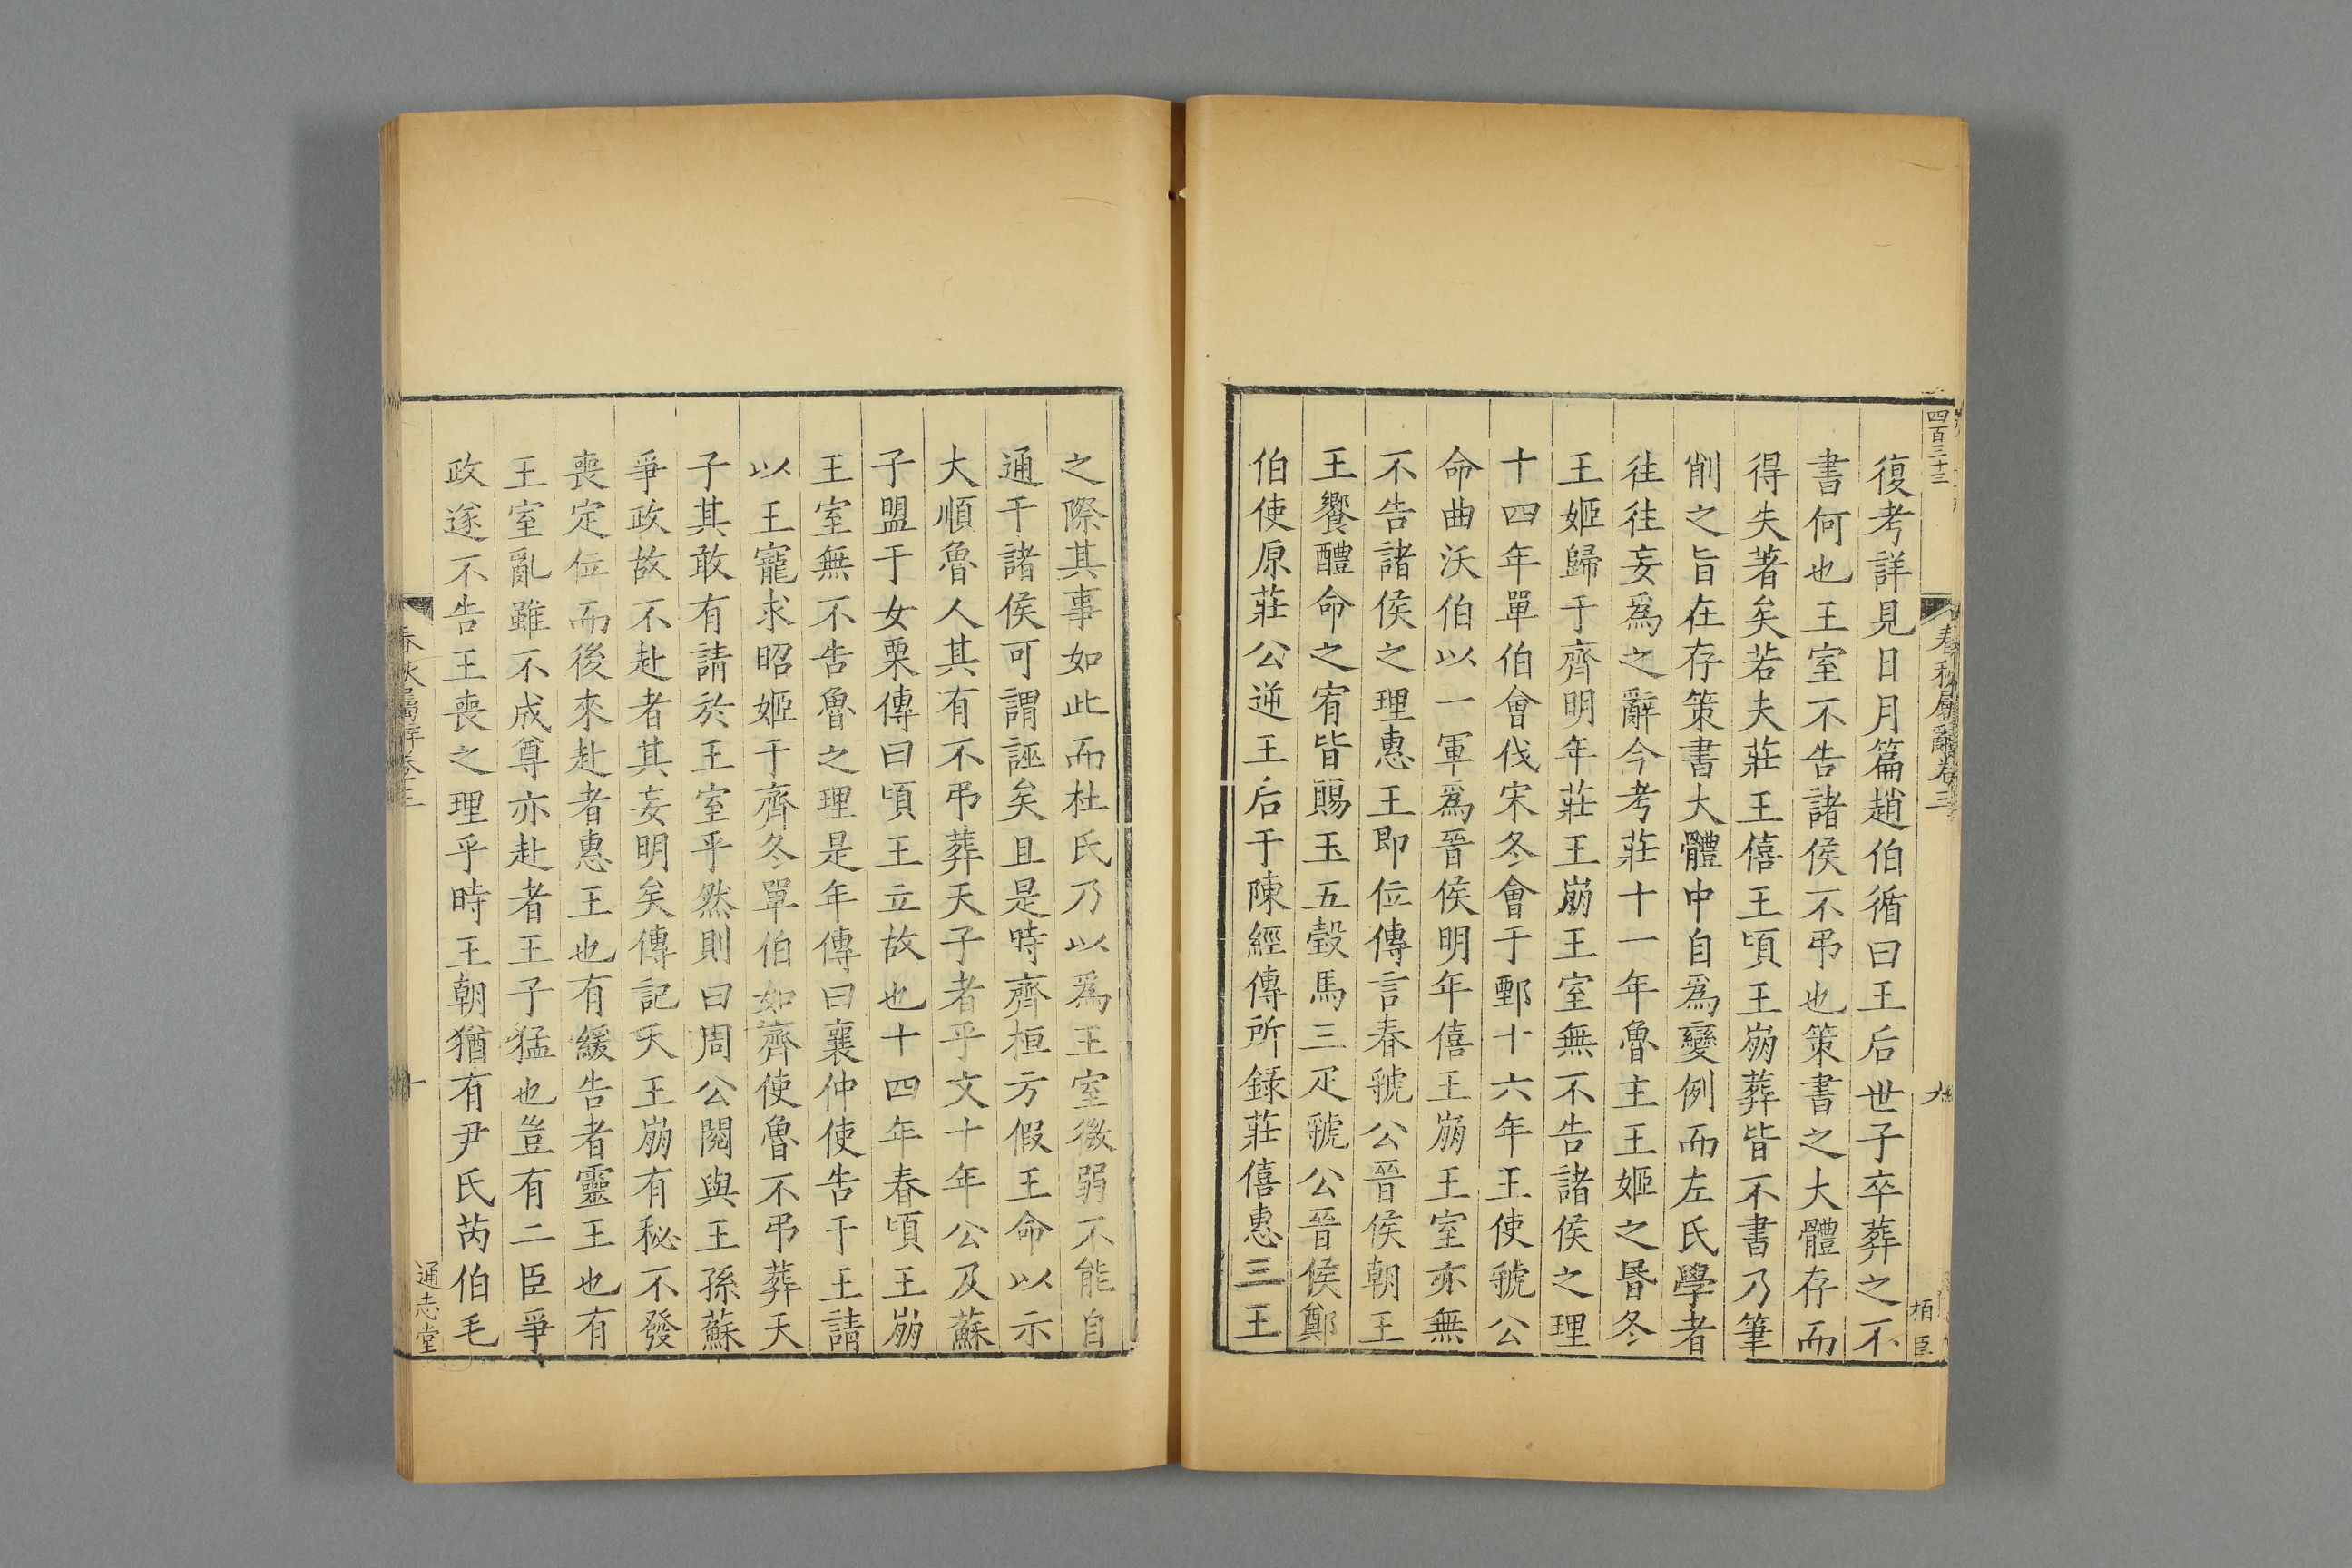 四百三十三
春秋屬辭卷三
九
柏臣
復考詳見日月篇趙伯循曰王后世子卒葬之不
書何也王室不告諸侯不弔也策書之大體存而
得失著矣若夫莊王僖王頃王崩葬皆不書乃筆
削之旨在存策書大體中自爲變例而左氏學者
往往妄爲之辭今考莊十一年魯主王姬之昬冬
王姬歸于齊明年莊王崩王室無不告諸侯之理
十四年單伯會伐宋冬會于鄄十六年王使虢公
命曲沃伯以一軍爲晉侯明年僖王崩王室亦無
不告諸侯之理惠王即位傳言春虢公晉侯朝王
王饗醴命之宥皆賜玉五瑴馬三疋虢公晉侯鄭
伯使原莊公逆王后于陳經傳所録莊僖惠三王
之際其事如此而杜氏乃以爲王室微弱不能自
通于諸侯可謂誣矣且是時齊桓方假王命以示
大順魯人其有不弔葬天子者乎文十年公及蘇
子盟于女栗傳曰頃王立故也十四年春頃王崩
王室無不告魯之理是年傳曰襄仲使告于王請
以王寵求昭姬于齊冬單伯如齊使魯不弔葬天
子其敢有請於王室乎然則曰周公閱與王孫蘇
爭政故不赴者其妄明矣傳記天王崩有秘不發
喪定位而後來赴者惠王也有緩告者靈王也有
王室亂雖不成尊亦赴者王子猛也豈有二臣爭
政遂不告王喪之理乎時王朝猶有尹氏芮伯毛
春秋屬辭卷三
十
通志堂